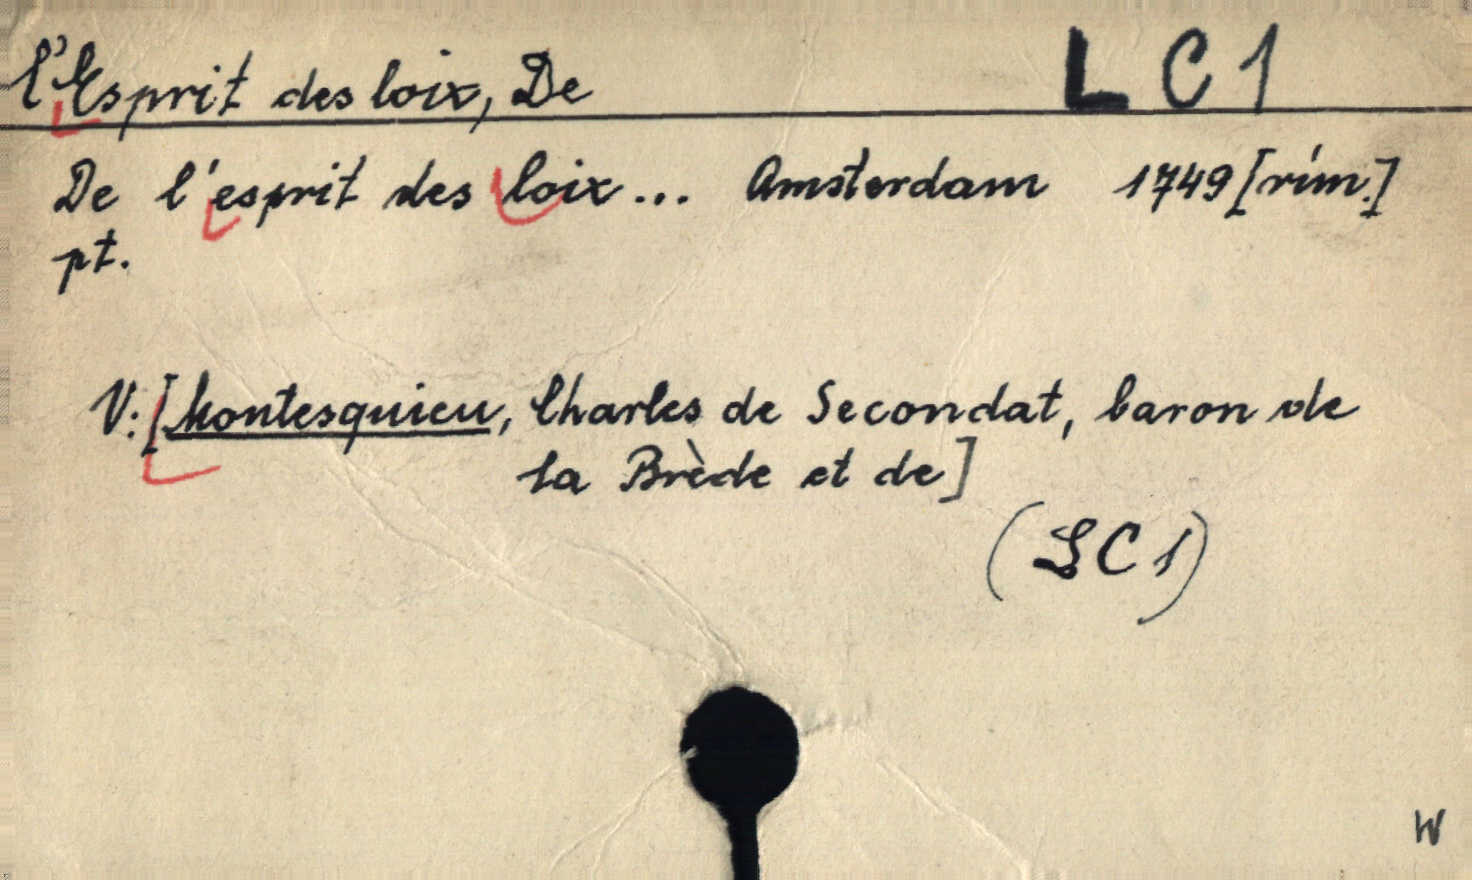 l'Esprit des loix, De LC1
De l'esprit des loix... Amsterdam 1749 [rím.]
pt.
V: [Montesquieu, Charles de Secondat, baron de
la Brède et de]
(LC1)
W